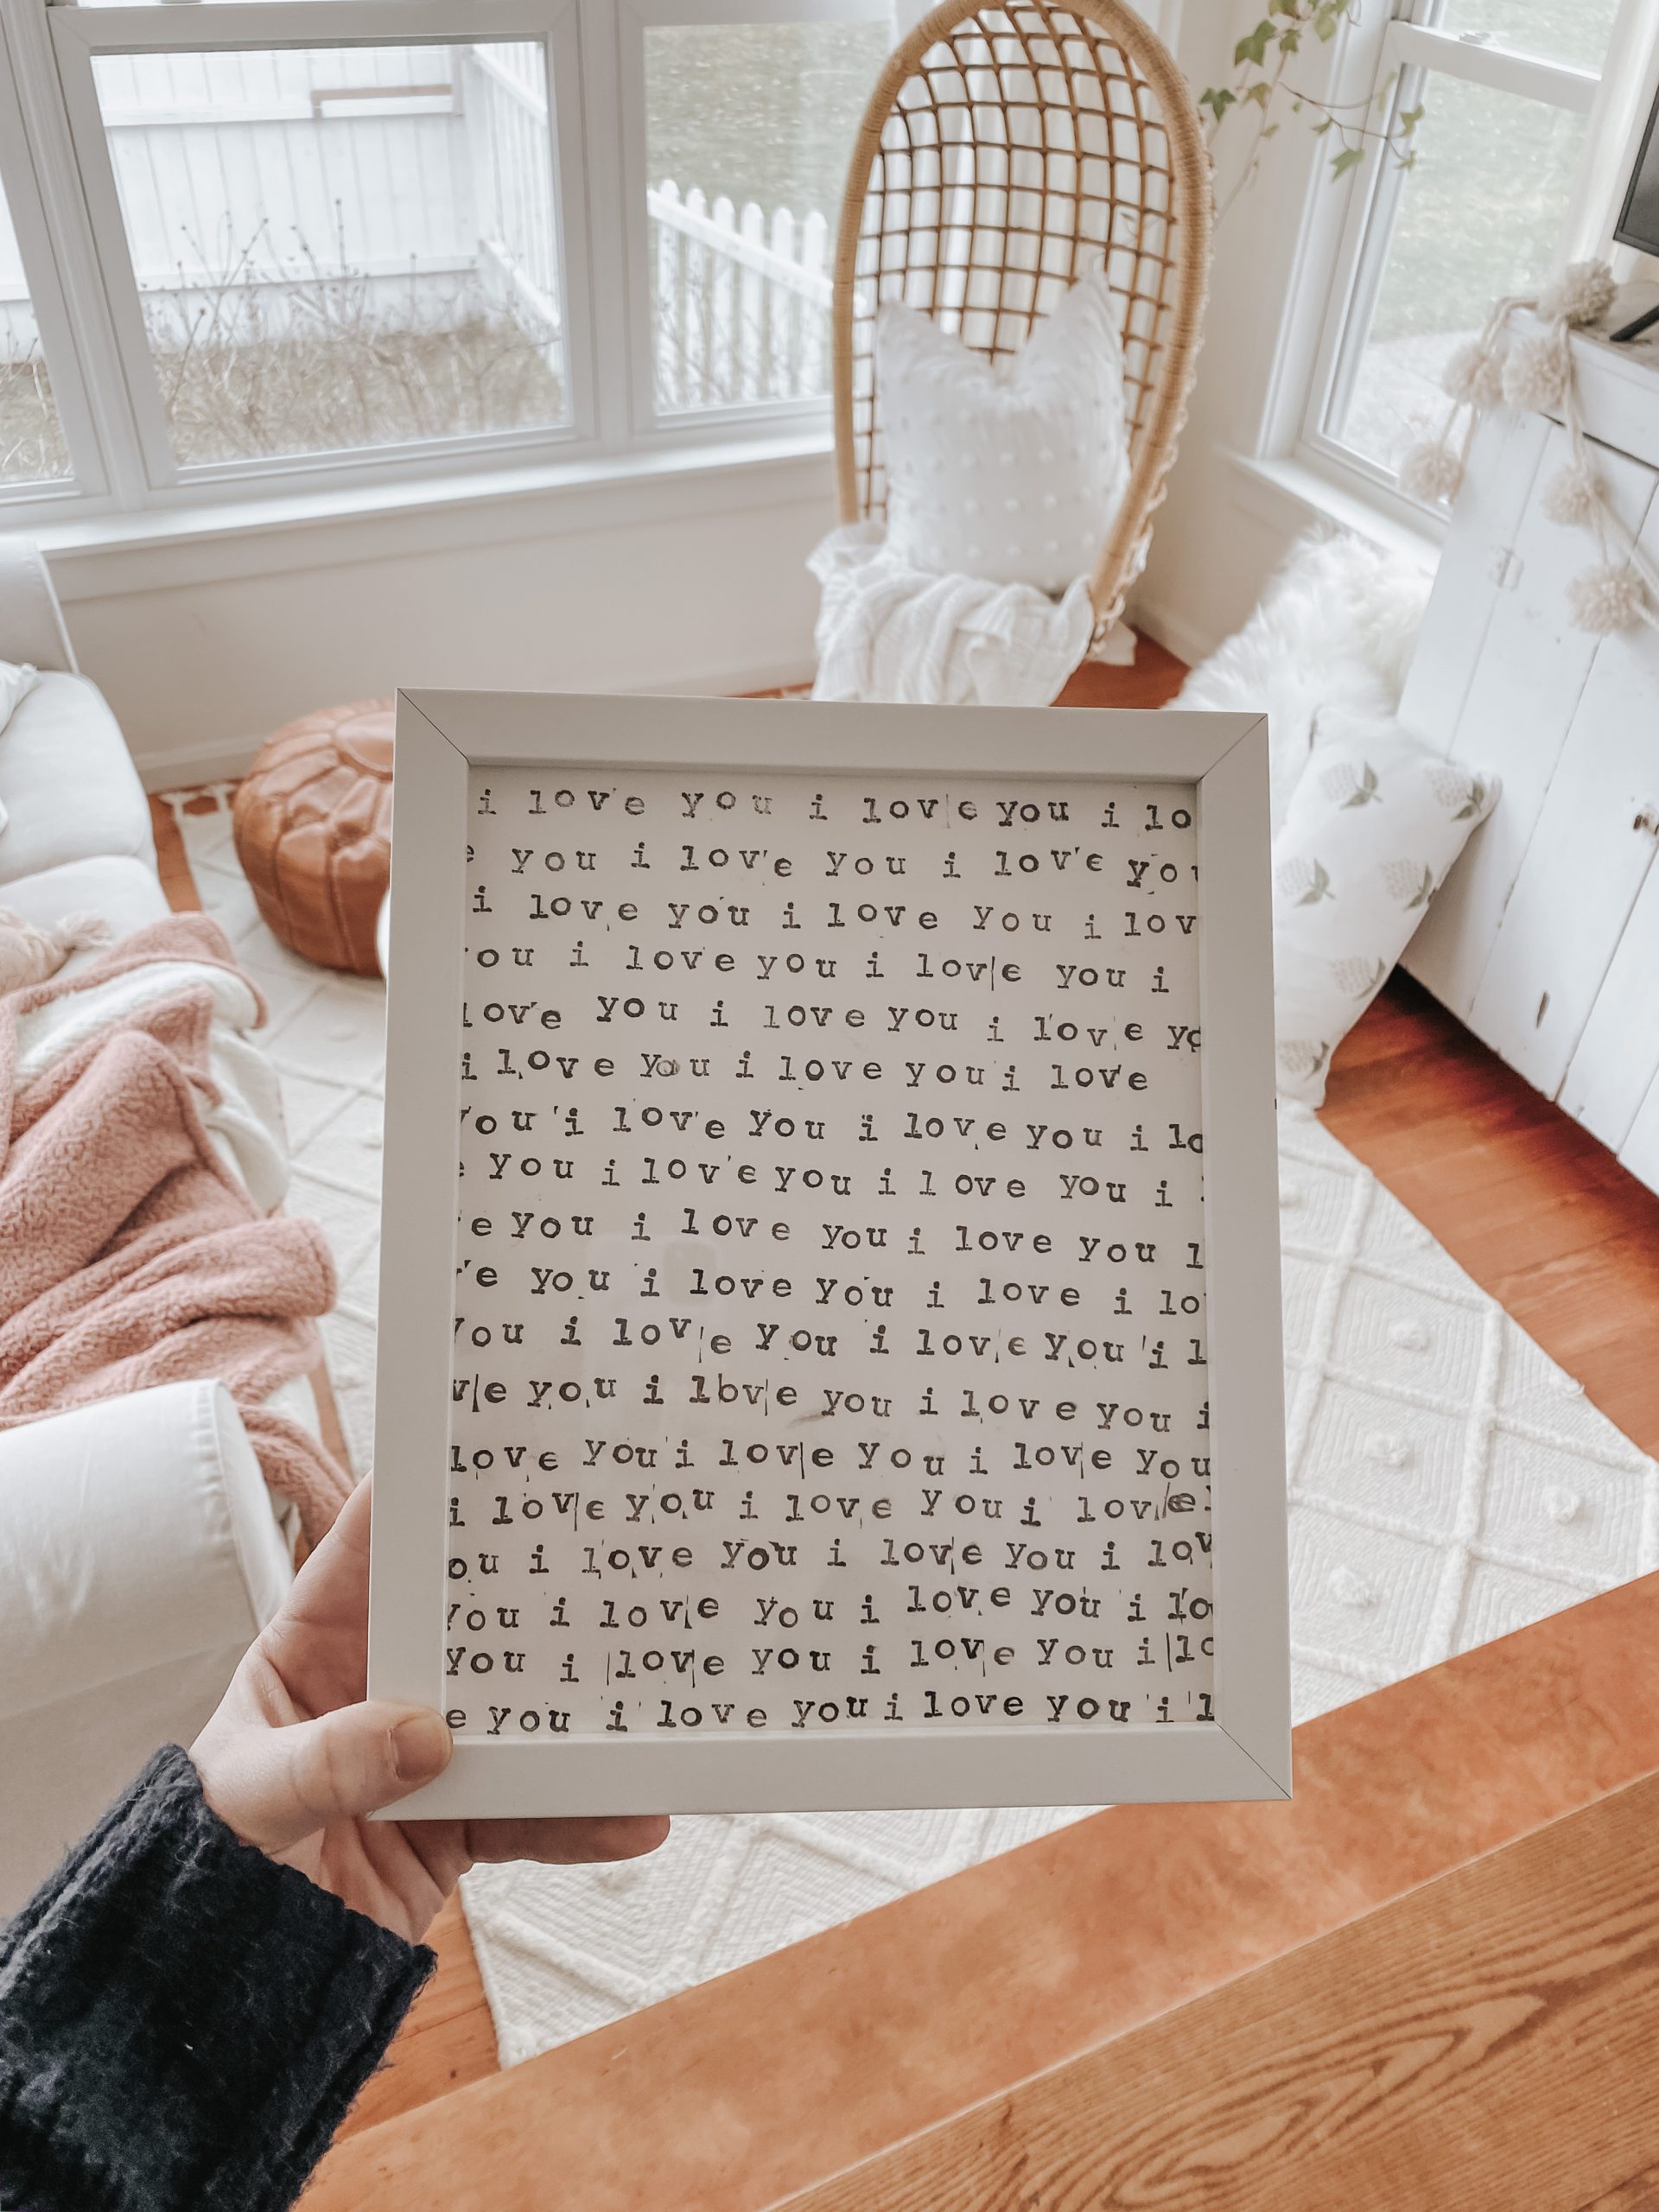 i love you i love you i lo
e you i love you i love you
i love you i love you i lov
you i love you i love you i
love you i love you i love yo
i love you i love you i love
you i love you i love you i lo
e you i love you i love you i
e you i love you i love you l
ve you i love you i love i lo
you i love you i love you i l
ve you i love you i love you i
love you i love you i love you
i love you i love you i love
ou i love you i love you i lov
you i love you i love you i lo
you i love you i love you i lo
e you i love you i love you i l